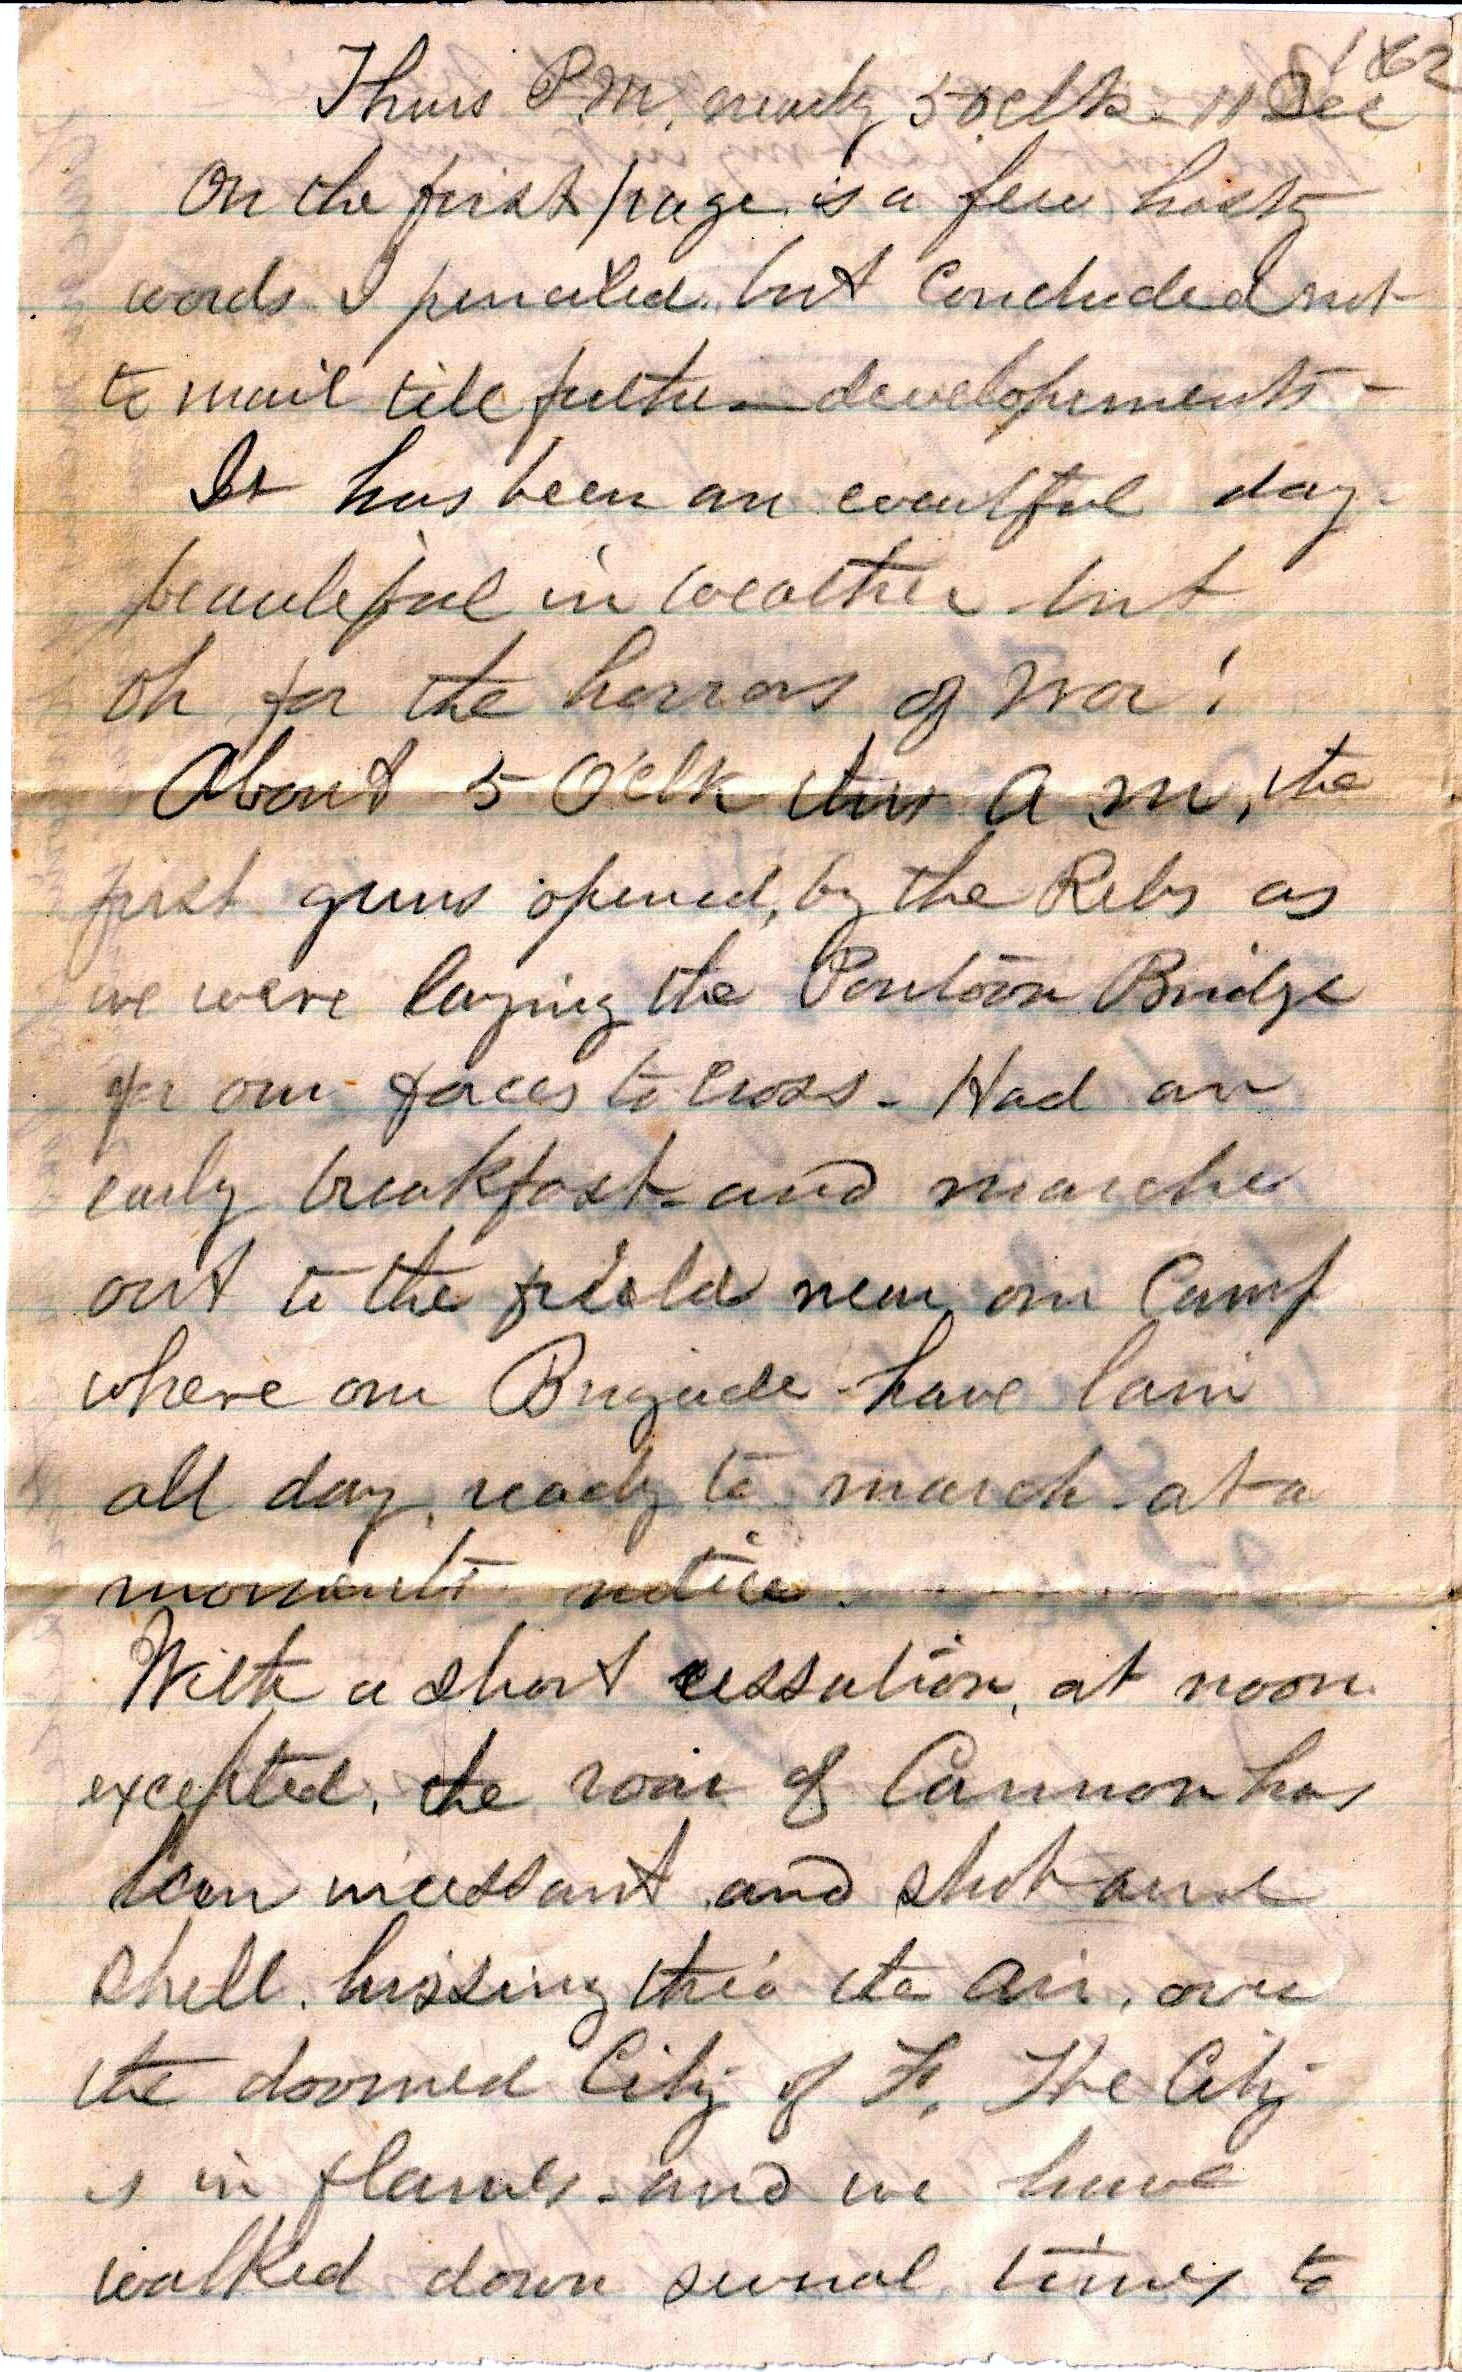 1862
Thurs P.M. nearly 5 oclk - 11 Dec
On the first page is a few hasty
words I penciled but Concluded not
to mail till futher developements -
It has been an eventful day -
beautiful in weather but
oh for the horrors of War!
About 5 O'clk this A.M, the
first guns opened, by the Rebs as
we were laying the Pontoon Bridge
for our forces to Cross - Had an
early breakfast - and marched
out to the field near our Camp
where our Brigade have lain
all day, ready to march at a
moments notice.
With a short cessation, at noon
excepted, the roar of Cannon has
been incessant and shot and
shell, hissing thro' the air, over
the doomed City of F. The City
is in flames - and we have
walked down several times to